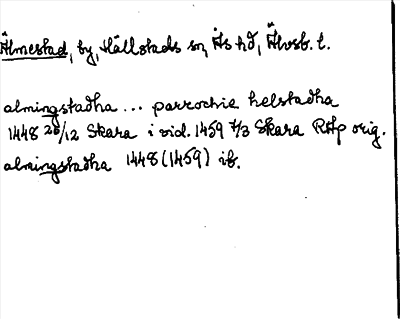 Älmestad, by, Hällstads sn, Ås hd, Älvsb. l.
almingstadha ... parrochie helstadha
1448 28/12 Skara i vid. 1459 7/3 Skara RAp orig.
almingstadha 1448 (1459) ib.